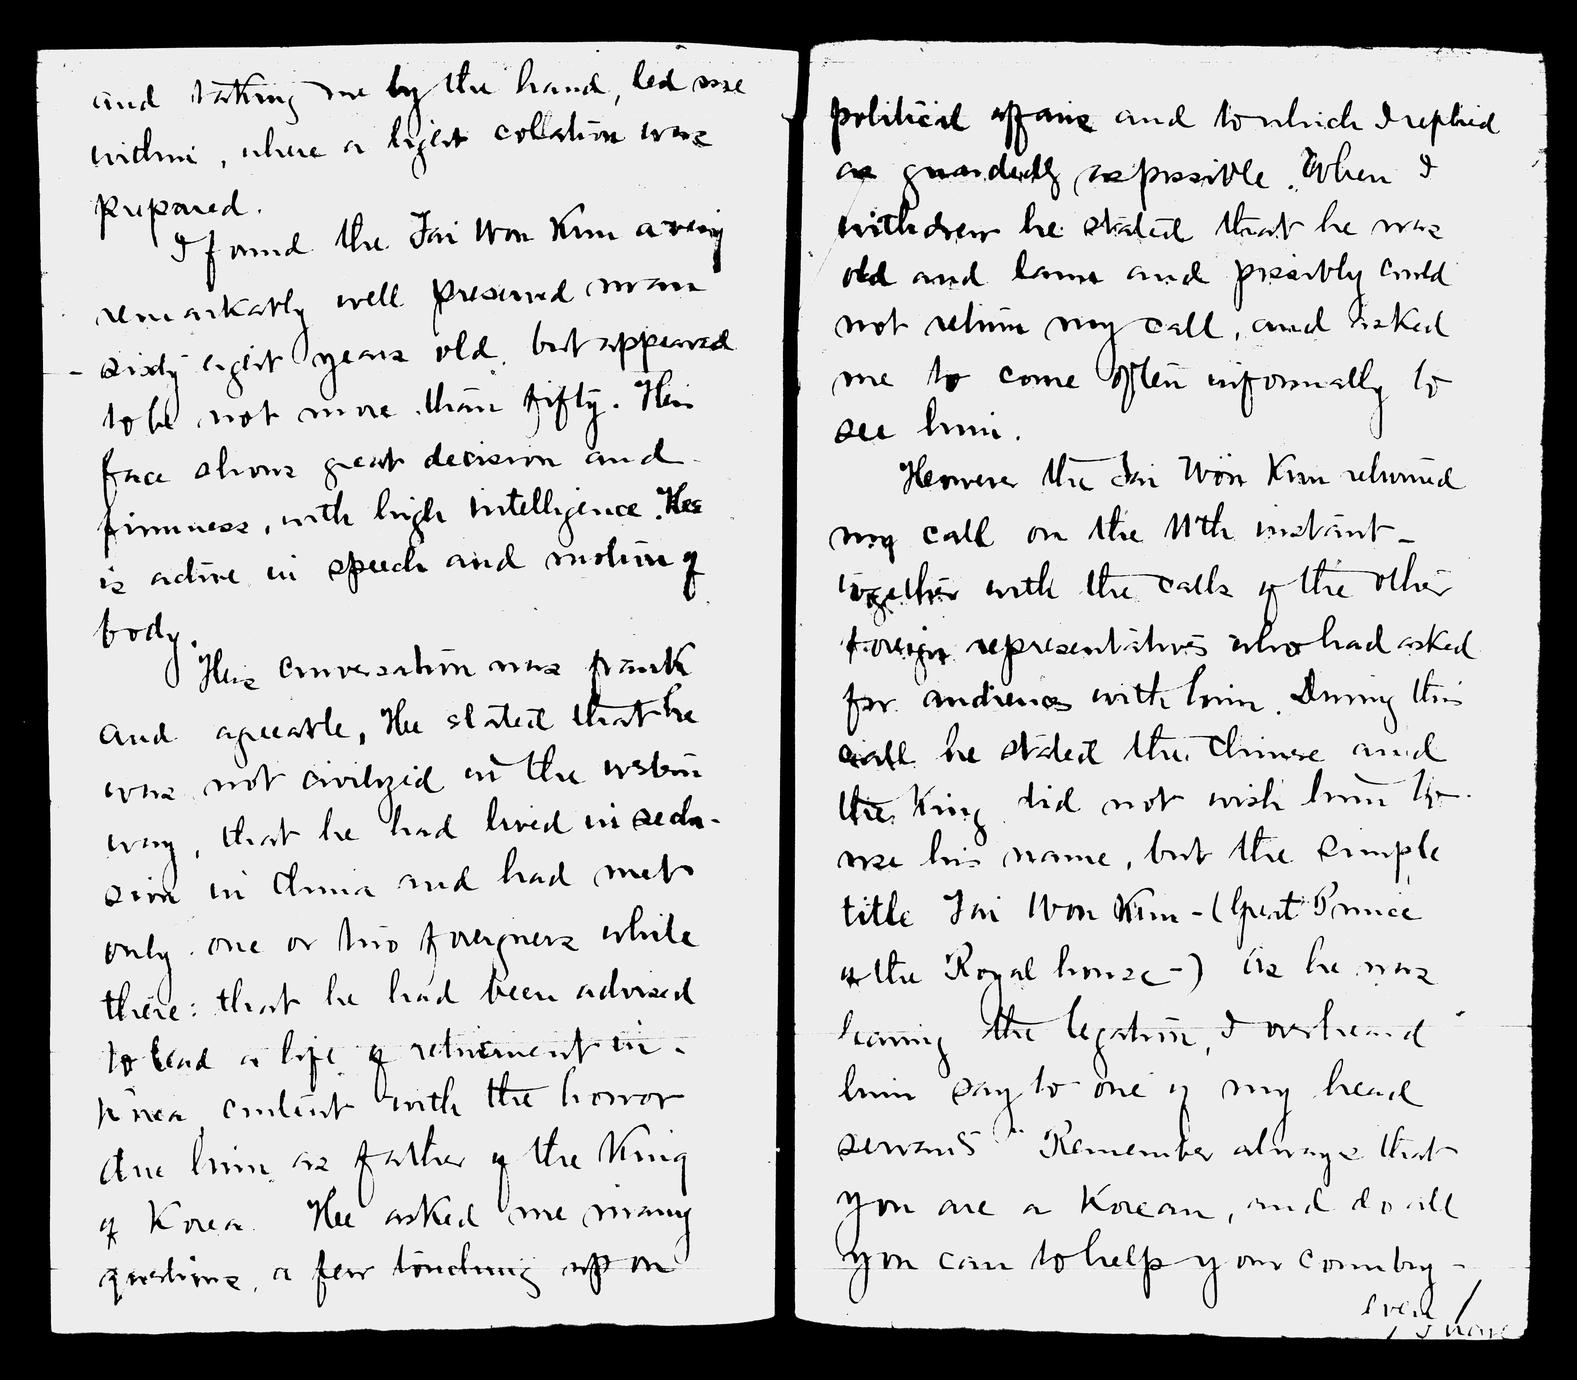 and taking me by the hand, led me
within, where a light collation was
prepared.
I found the Tai Won Kun a very
remarkably well preserved man
sixty eight years old, but appeared
to be not more than fifty. His
face shows great decision and
firmness, with high intelligence. Hee
is active in speech and motion of
body.
His conversation was frank
and agreeable, Hee stated that he
was not civilized in the western
way, that he had lived in seclu-
sion in China and had met
only one or two foreigners while
there: that he had been advised
to lead a life of retirement in
Korea, content with the honor
due him as father of the King
of Korea. Hee asked me many
questions, a few touching upon
political affairs and to which I replied
as guardedly as possible. When I
withdrew he stated that he was
old and lame and possibly could
not return my call, and asked
me to come often informally to
see him.
However the Tai Won Kun returned
my call on the 11th instant-
together with the calls of the other
foreign representatives who had asked
for audiences with him. During this
call he stated the Chinese and
the King did not wish him to
use his name, but the simple
title Tai Won Kun-(Great Prince
of the Royal house-) As he was
leaving the legation, I overheard
him say to one of my head
servants "Remember always that
you are a Korean, and do all
you can to help your country-
even /